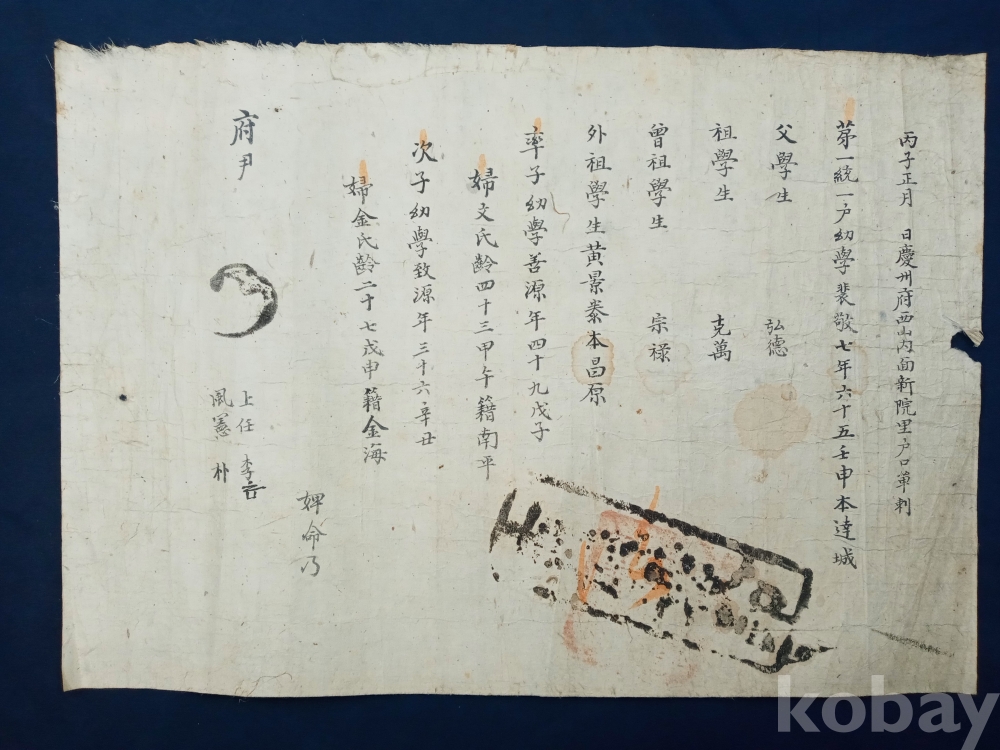 丙子正月 日慶州府西山內面新院里户口單刺
苐一統一户幼學裴敬七年六十五壬申本達城
父學生 弘德
祖學生 克萬
曾祖學生 宗祿
外祖學生黃景泰本昌原
率子幼學善源年四十九戊子
婦文氏齡四十三甲午籍南平
次子幼學致源年三十六辛丑
婦金氏齡二十七戊申籍金海
婢命乃
府尹
上任 李
風憲 朴
kobay